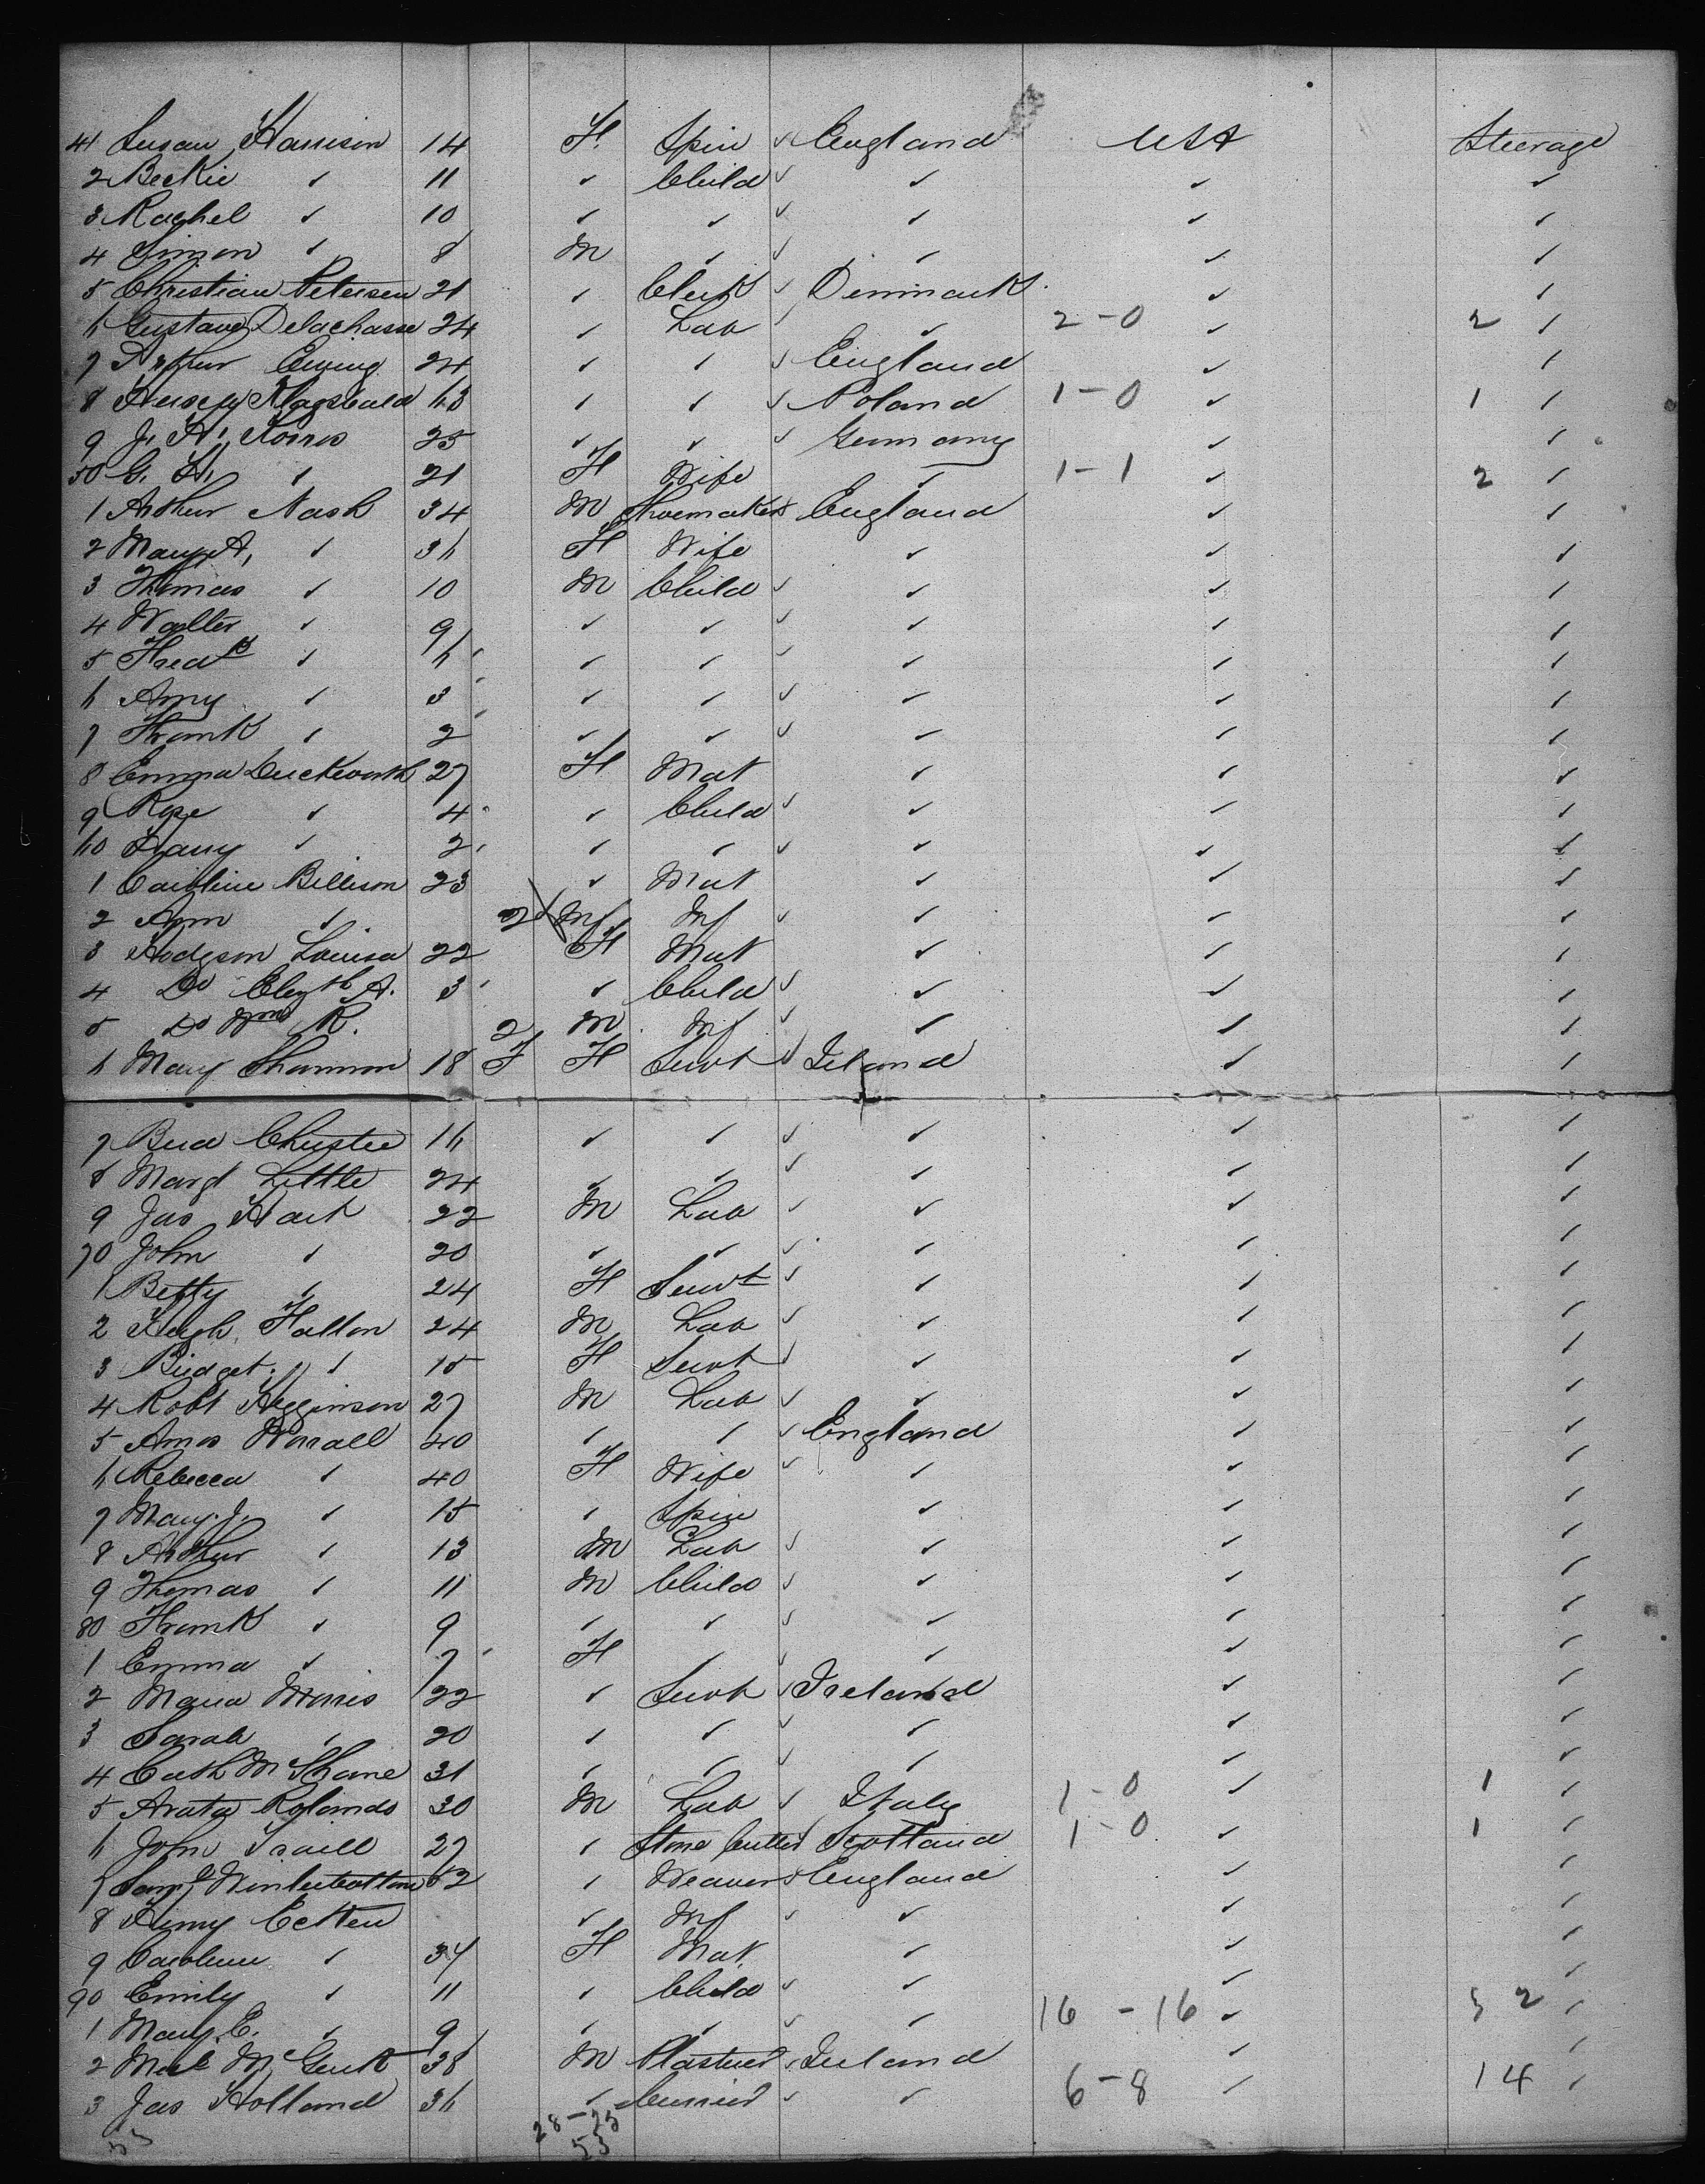 41 Susan Harrison 14 F. Spin ✓ England USA Steerage
2 Beckie ✓ 11 ✓ Child ✓ ✓ ✓ ✓
3 Rachel ✓ 10 ✓ ✓ ✓ ✓ ✓ ✓
4 Simon ✓ 8 M ✓ ✓ ✓ ✓ ✓
5 Christian Petersen 21 ✓ Clerk ✓ Denmark ✓ ✓
6 Gustave Delachasse 24 ✓ Lab ✓ ✓ 2-0 ✓ 2 ✓
7 Arthur Ewing 24 ✓ ✓ ✓ England ✓ ✓
8 63 ✓ ✓ ✓ Poland 1-0 ✓ 1 ✓
9 J. A. 25 ✓ ✓ ✓ Germany ✓ ✓
50 G. H. ✓ 21 F Wife ✓ 1-1 ✓ 2 ✓
1 Arthur Nash 34 M Shoemaker ✓ England ✓ ✓
2 Mary A, ✓ 36 F Wife ✓ ✓ ✓
3 Thomas ✓ 10 M Child ✓ ✓ ✓ ✓
4 Walter ✓ 9 ✓ ✓ ✓ ✓ ✓ ✓
5 Fredk ✓ 6 ✓ ✓ ✓ ✓ ✓ ✓
6 Amy ✓ 3 ✓ ✓ ✓ ✓ ✓ ✓
7 Frank ✓ 2 ✓ ✓ ✓ ✓ ✓ ✓
8 Emma Duckworth 27 F Mat ✓ ✓ ✓
9 Rose ✓ 4 ✓ Child ✓ ✓ ✓ ✓
60 Harry ✓ 2 ✓ ✓ ✓ ✓ ✓ ✓
1 Caroline Billison 23 ✓ Mat ✓ ✓ ✓
2 Ann ✓ 2 Inf Inf ✓ ✓ ✓ ✓
3 Hodgson Louisa 22 F Mat ✓ ✓ ✓
4 Do Elizth A. 3 ✓ Child ✓ ✓ ✓ ✓
5 Do Wm R. 2 M Inf ✓ ✓ ✓ ✓
6 Mary Shannon 18 F F Servt ✓ Ireland ✓ ✓
7 Brid Christie 16 ✓ ✓ ✓ ✓ ✓ ✓
8 Margt Little 24 ✓ ✓ ✓ ✓ ✓ ✓
9 Jas Hart 22 M Lab ✓ ✓ ✓ ✓
70 John ✓ 20 ✓ ✓ ✓ ✓ ✓ ✓
1 Betty ✓ 24 F Servt ✓ ✓ ✓ ✓
2 Hugh Fallon 24 M Lab ✓ ✓ ✓ ✓
3 Bridget ✓ 15 F Servt ✓ ✓ ✓ ✓
4 Robt Higginson 27 M Lab ✓ ✓ ✓ ✓
5 Amos Worrall 40 ✓ ✓ ✓ England ✓ ✓
6 Rebecca ✓ 40 F Wife ✓ ✓ ✓ ✓
7 Mary J. ✓ 15 ✓ Spin ✓ ✓ ✓
8 Arthur ✓ 13 M Lab ✓ ✓ ✓ ✓
9 Thomas ✓ 11 M Child ✓ ✓ ✓ ✓
80 Frank ✓ 9 ✓ ✓ ✓ ✓ ✓ ✓
1 Emma ✓ 7 F ✓ ✓ ✓ ✓ ✓
2 Maria Morris 22 ✓ Servt ✓ Ireland ✓ ✓
3 Sarah ✓ 20 ✓ ✓ ✓ ✓ ✓ ✓
4 Cath McShane 31 ✓ ✓ ✓ ✓ ✓ ✓
5 Arata Rolando 30 M Lab ✓ Italy 1-0 ✓ 1 ✓
6 John Traill 27 ✓ Stone Cutter ✓ Scotland 1-0 ✓ 1 ✓
7 Saml Winterbottom 52 ✓ Weaver ✓ England ✓ ✓
8 ✓ Inf ✓ ✓ ✓ ✓
9 Caroline ✓ 34 F Mat ✓ ✓ ✓
90 Emily ✓ 11 ✓ Child ✓ ✓ ✓ ✓
1 Mary E. ✓ 9 ✓ ✓ ✓ ✓ 16-16 ✓ 32 ✓
2 Mich McGurk 38 M Plasterer ✓ Ireland ✓ ✓
3 Jas Holland 36 ✓ Currier ✓ ✓ 6-8 ✓ 14 ✓
28-25
53 53